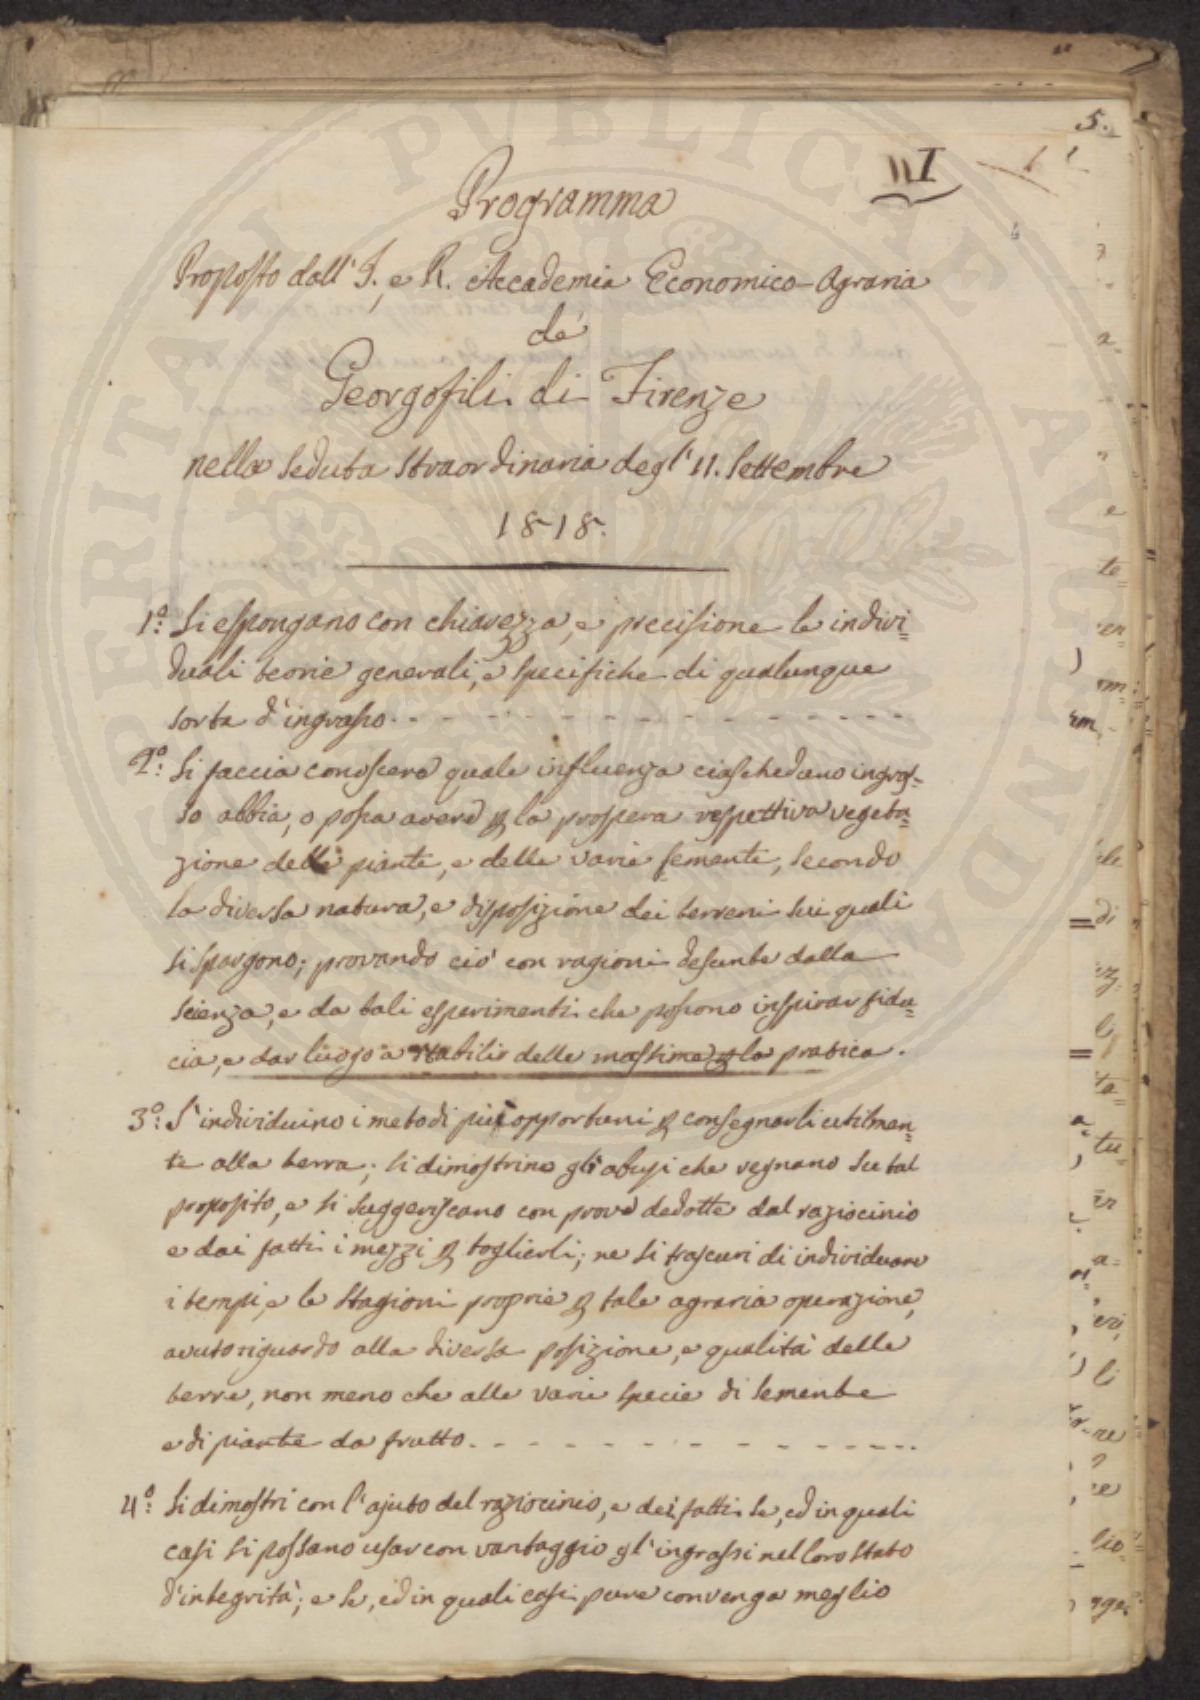 5.
I
Programma
Proposto dall' I. e R. Accademia Economico-Agraria
de'
Georgofili di Firenze
nella seduta straordinaria degl' 11. Settembre
1818.
1.° Si espongano con chiarezza, e precisione le indivi=
duali teorie generali, e specifiche di qualunque
sorta d'ingrasso.
2.° Si faccia conoscere quale influenza ciascheduno ingras=
so abbia, o possa avere per la prospera respettiva vegeta=
zione delle piante, e delle varie sementi, secondo
la diversa natura, e disposizione dei terreni sui quali
si spargono; provando ciò con ragioni desunte dalla
scienza, e da tali esperimenti che possono inspirar fidu=
cia, e dar luogo a stabilir delle massime per la pratica.
3.° S'individuino i metodi più opportuni per consegnarli utilmen=
te alla terra; si dimostrino gli abusi che regnano su tal
proposito, e si suggeriscano con prove dedotte dal raziocinio
e dai fatti i mezzi per toglierli; ne si trascuri di individuare
i tempi, e le stagioni proprie per tale agraria operazione,
avuto riguardo alla diversa posizione, e qualità delle
terre, non meno che alle varie specie di semente
e di piante da frutto.
4.° Si dimostri con l'ajuto del raziocinio, e dei fatti se, ed in quali
casi si possano usar con vantaggio gl'ingrassi nel loro stato
d'integrità; e se, ed in quali casi pure convenga meglio